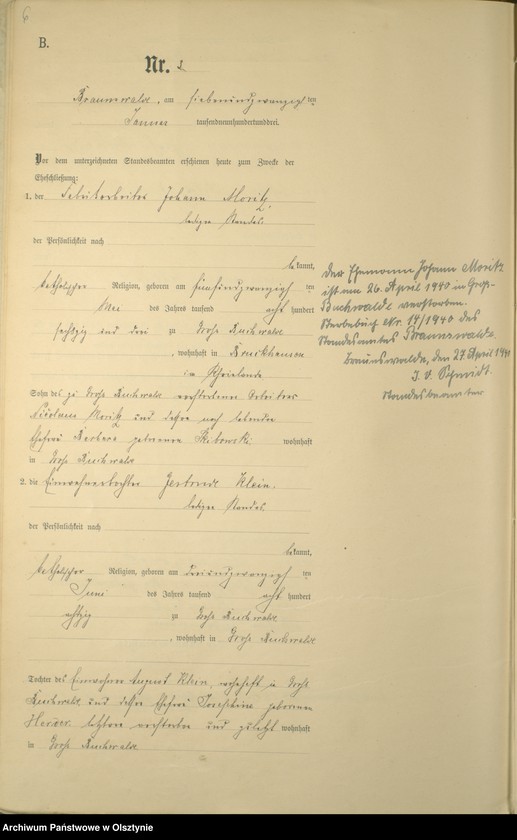 6
B.
Nr. 2
Braunswalde, am siebenundzwanzigsten
Januar tausendneunhundertunddrei.
Vor dem unterzeichneten Standesbeamten erschienen heute zum Zwecke der
Eheschließung:
1. der Johann Moritz,
ledigen Standes
der Persönlichkeit nach
bekannt,
katholischer Religion, geboren am fünfundzwanzigsten
Mai des Jahres tausend acht hundert
sechzig und drei zu Groß Buchwalde
, wohnhaft in
im
Sohn des zu Groß Buchwalde verstorbenen Arbeiters
Nicolaus Moritz und dessen noch lebender
Ehefrau Barbara geborenen wohnhaft
in Groß Buchwalde
2. die Einwohnertochter Gertrude Klein,
ledigen Standes
der Persönlichkeit nach
bekannt,
katholischer Religion, geboren am dreiundzwanzigsten
Juni des Jahres tausend acht hundert
achtzig zu Groß Buchwalde
, wohnhaft in Groß Buchwalde
Tochter des Einwohners August Klein, wohnhaft in Groß
Buchwalde und dessen Ehefrau Josephine geborenen
letztere verstorben und zuletzt wohnhaft
in Groß Buchwalde
Der Ehemann Johann Moritz
ist am 26. April 1940 in Groß-
Buchwalde verstorben.
Sterbebuch Nr. 14/1940 des
Standesamtes Braunswalde.
Braunswalde, den 27. April 1940
I. V. Schmidt.
Standesbeamter
Archiwum Państwowe w Olsztynie